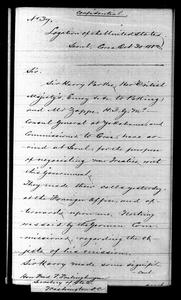 Confidential
No. 39.
Legation of the United States
Seoul, Corea Oct 30 188
Sir.
Sir Harry Parkes, Her British
Majesty's Envoy etc to Peking;
and Mr Zappe, H.I.G.M's
Consul General at Yokohama and
Commissioner to Corea, have ar-
rived at Seoul, for the purpose
of negociating new treaties with
this Government.
They made their calls yesterday
at the Foreign Office, and af-
terwards upon me. Nothing
was said by the Corean Com-
missioners, regarding the ob-
jects of his mission.
Sir Harry made some
and
Hon. Fred T. Frelinghuysen
Secretary of State
Washington D.C.